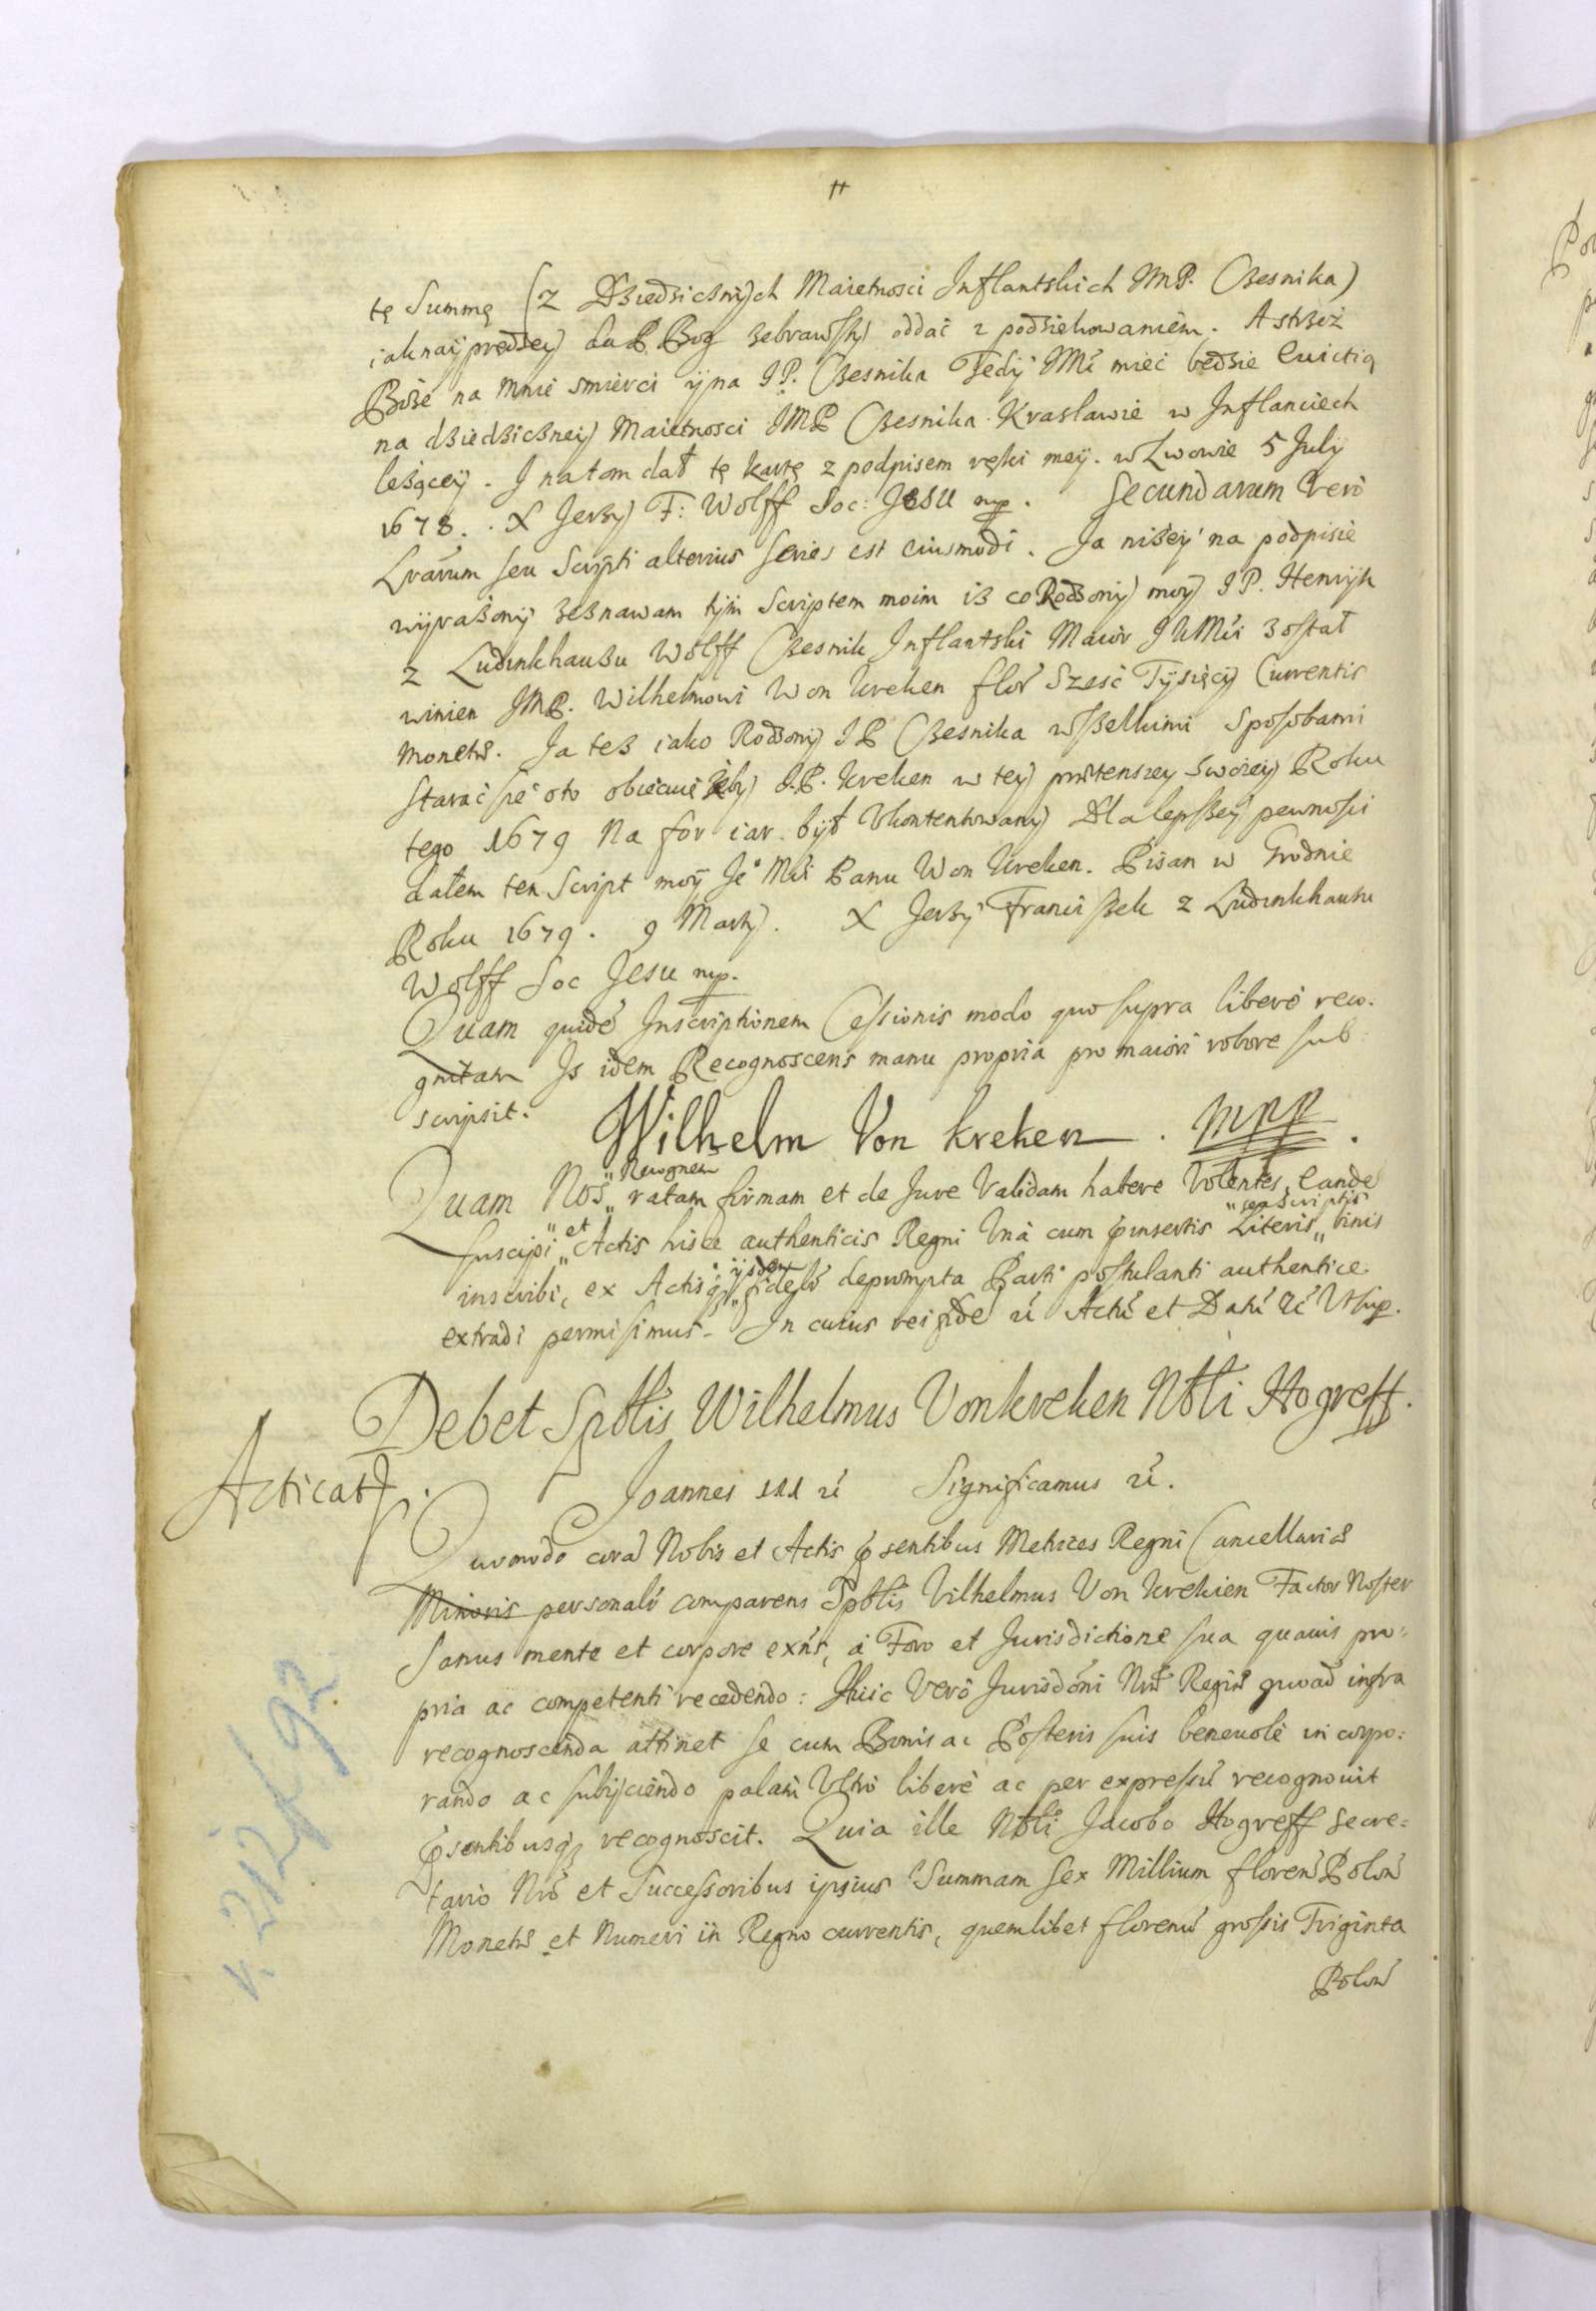 tę Summę (z Dziedzicznych Maietnosci Inflantskich JMP. Czesnika)
iaknaÿprędzey da P Bog zebrawszy oddać z podziekowaniem. A strzeż
Boże na mnie smierci ÿ na JP. Czesnika Tedÿ JMć mieć będzie Euictią
na dziedziczney Maietnosci JMP Czesnika Krasławie w Inflanciech
leżącey. J natom dał tę kartę z podpisem ręki meÿ. w Lwowie 5 Julÿ
1678. . X Jerzy F: Wolff Soc: Jesu mp. Secundarum Vero
Lrarum seu Scripti alterius series est eiusmodi. Ja niżey na podpisie
wÿrażonÿ zeznawam tÿm Scriptem moim iz co Rodzony moy JP. Henrÿk
z Ludinkhauzu Wolff Czesnik Inflantski Maior JKMći został
winien JMP. Wilhelmowi Won Kreken flor Szesć Tÿsięcy Currentis
monetæ. Ja tez iako Rodzony JP Czesnika wszelkimi sposobami
starać się oto obiecuię żeby J.P. Kreken w tey prætenszey swoiey Roku
tego 1679 na for iar. bÿł Ukontentowany Dla lepszey pewnosci
dałem ten Script moÿ Jeº Mći Panu Won Kreken. Pisan w Grodnie
Roku 1679. 9 Marty. X Jerzy Franciszek z Ludinkhauzu
Wolff Soc Jesu mp.
Quam quidé Inscriptionem Cessionis modo quo supra liberè reco-
gnitam Is idem Recognoscens manu propria pro maiori robore sub
scripsit.
Wilhelm Von Kreken . mpp .
Quam Nos „Recognem„ ratam firmam et de Jure Validam habere Volentes, eandé
suscipi „et„ Actis hisce authenticis Regni Unà cum præinsertis Literis „seu Scriptis„ binis
inscribi, ex Actisq; „ijsdem„ fideló depromptа Parti postulanti authentice
extradi permisimus. In cuius rei fidé &c Actú et Datú &c Utsup.
Debet Spbłis Wilhelmus Vonkreken Nbłi Hogreff.
Acticat.
Joannes III &c Significamus &c.
Quomodo corá Nobis et Actis præsentibus Metrices Regni Cancellariæ
Minoris personalí comparens Spbłis Vilhelmus Von Krekien Factor Noster
Sanus mente et corpore exńs, à Foro et Jurisdictione sua quauis pro-
pria ac competenti recedendo: Huic Verò Jurisdóni Nræ Regiæ quoad infra
recognoscenda attinet se cum Bonis ac Posteris suis beneuolè incorpo:
rando ac subijciendo palam Ultró liberè ac per expressú recognouit
præsentibusq; recognoscit. Quia ille Nbłi Jacobo Hogreff Secre=
tario Nró et Successoribus ipsius Summam Sex Millium floren Polon
Monetæ et Numeri in Regno currentis, quemlibet florenú grossis Triginta
Polon